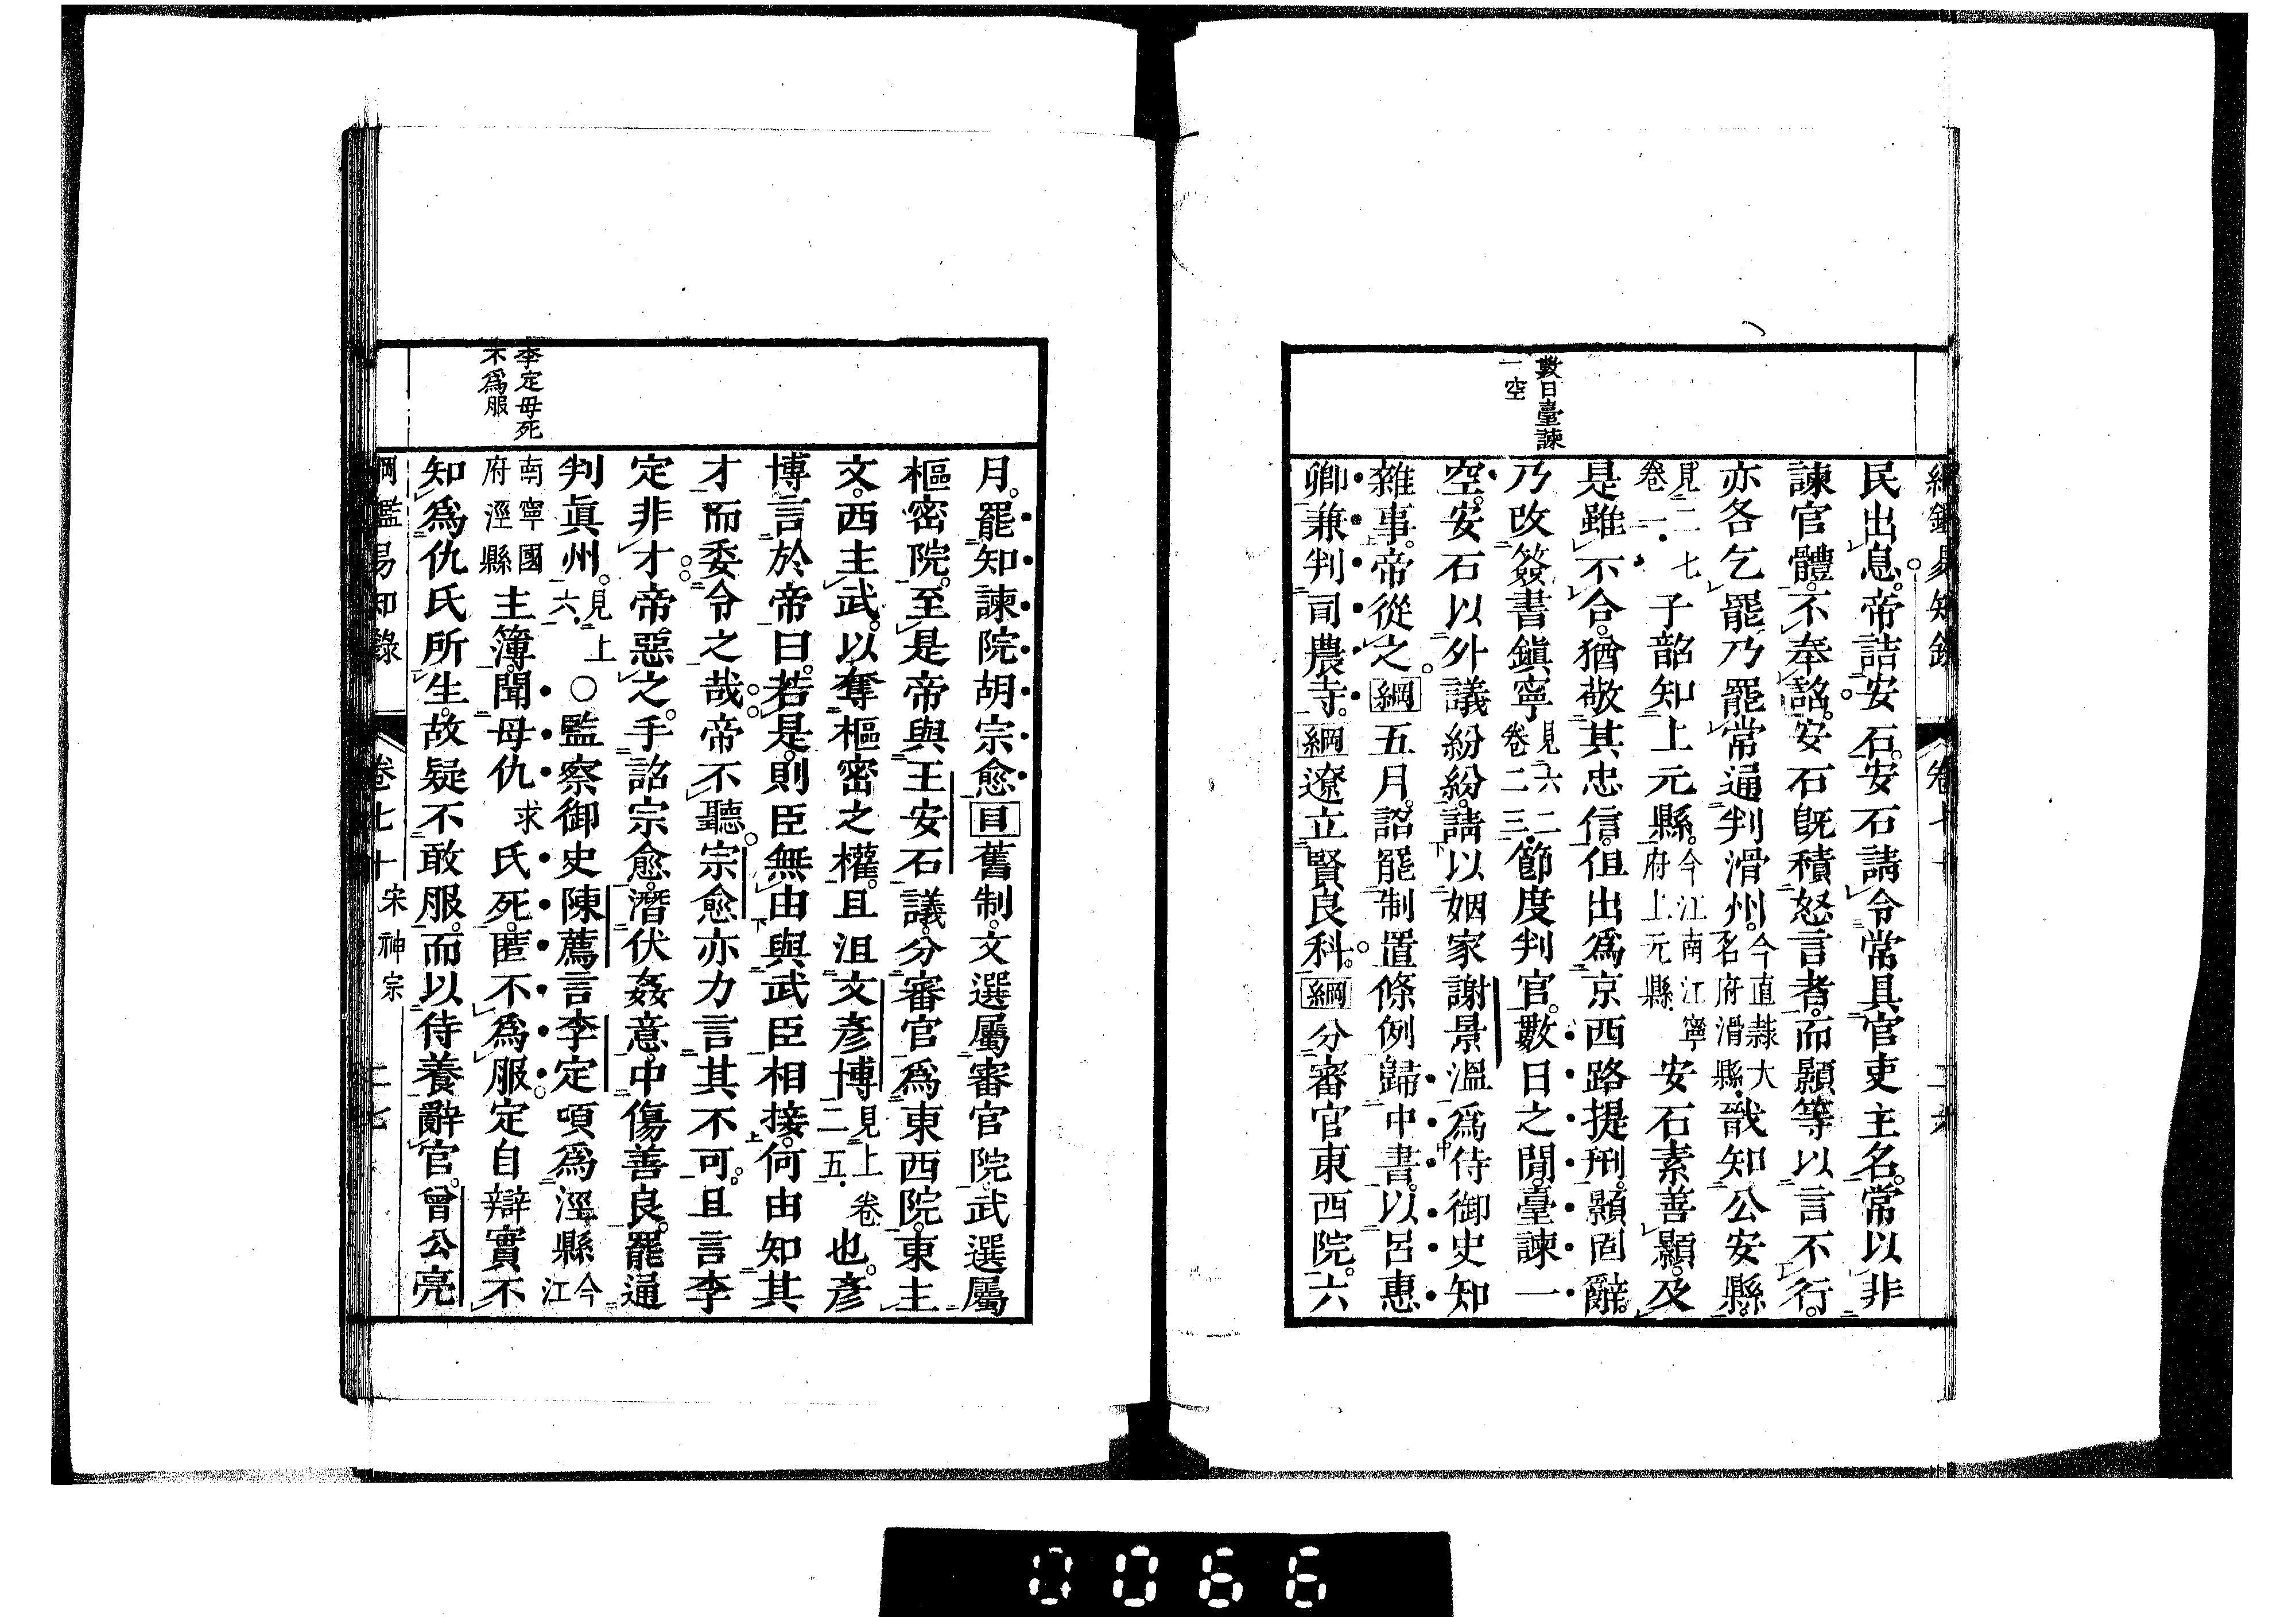 數日臺諫
一空
民出息。帝詰安石。安石請令常具官吏主名。常以非
諫官體。不奉詔。安石既積怒言者。而顥等以言不行。
亦各乞罷。乃罷常通判滑州。今直隸大名府滑縣。戩知公安縣。
見二七卷一。子韶知上元縣。今江南江寧府上元縣。安石素善顥。及
是雖不合。猶敬其忠信。但出為京西路提刑。顥固辭。
乃改簽書鎮寧見六二卷二三。節度判官。數日之閒。臺諫一
空。安石以外議紛紛。請以姻家謝景溫為侍御史知
雜事。帝從之。綱五月。詔罷制置條例歸中書。以呂惠
卿兼判司農寺。綱遼立賢良科。綱分審官東西院。六
李定母死
不為服
月。罷知諫院胡宗愈目舊制。文選屬審官院。武選屬
樞密院。至是帝與王安石議。分審官為東西院。東主
文。西主武。以奪樞密之權。且沮文彥博見上卷二五。也。彥
博言於帝曰。若是。則臣無由與武臣相接。何由知其
才而委令之哉。帝不聽。宗愈亦力言其不可。且言李
定非才。帝惡之。手詔宗愈。潛伏姦意。中傷善良。罷通
判眞州。見上六。○監察御史陳薦言李定頃為涇縣今江
南寧國府涇縣主簿。聞母仇求氏死。匿不為服。定自辯實不
知為仇氏所生。故疑不敢服。而以侍養辭官。曾公亮
綱鑑易知錄 卷七十 宋神宗 二七
0066